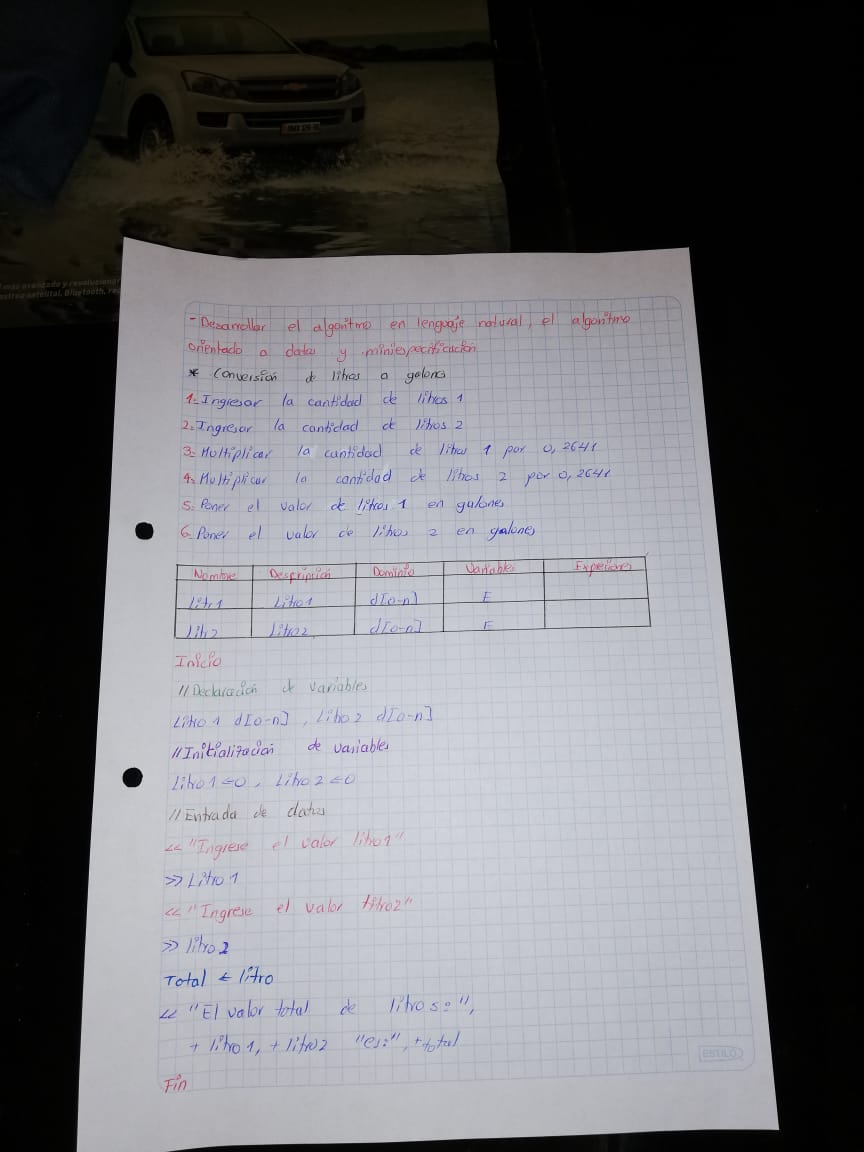 más avanzado y revolucionar
satelital, Bluetooth,
- Desarrollar el algoritmo en lenguaje natural, el algoritmo
orientado a datos y miniespecificación
* Conversión de litros a galones
1.- Ingresar la cantidad de litros 1
2.- Ingresar la cantidad de litros 2
3.- Multiplicar la cantidad de litros 1 por 0,2641
4.- Multiplicar la cantidad de litros 2 por 0,2641
5. Poner el valor de litros 1 en galones
6. Poner el valor de litros 2 en galones
Nombre Descripción Dominio Variables
Litr1 Litro1 d[0-n] E
Litr2 Litro2 d[0-n] E
Inicio
//Declaración de variables
Litro 1 d[0-n], Litro 2 d[0-n]
//Initialización de variables
Litro 1 ←0, Litro 2 ←0
//Entrada de datos
<< "Ingrese el valor litro1"
>> Litro 1
<< "Ingrese el valor litro2"
>> litro 2
Total ← litro
<< "El valor total de litros:",
+ litro 1, + litro2 "es:", +total
Fin
ESTILO